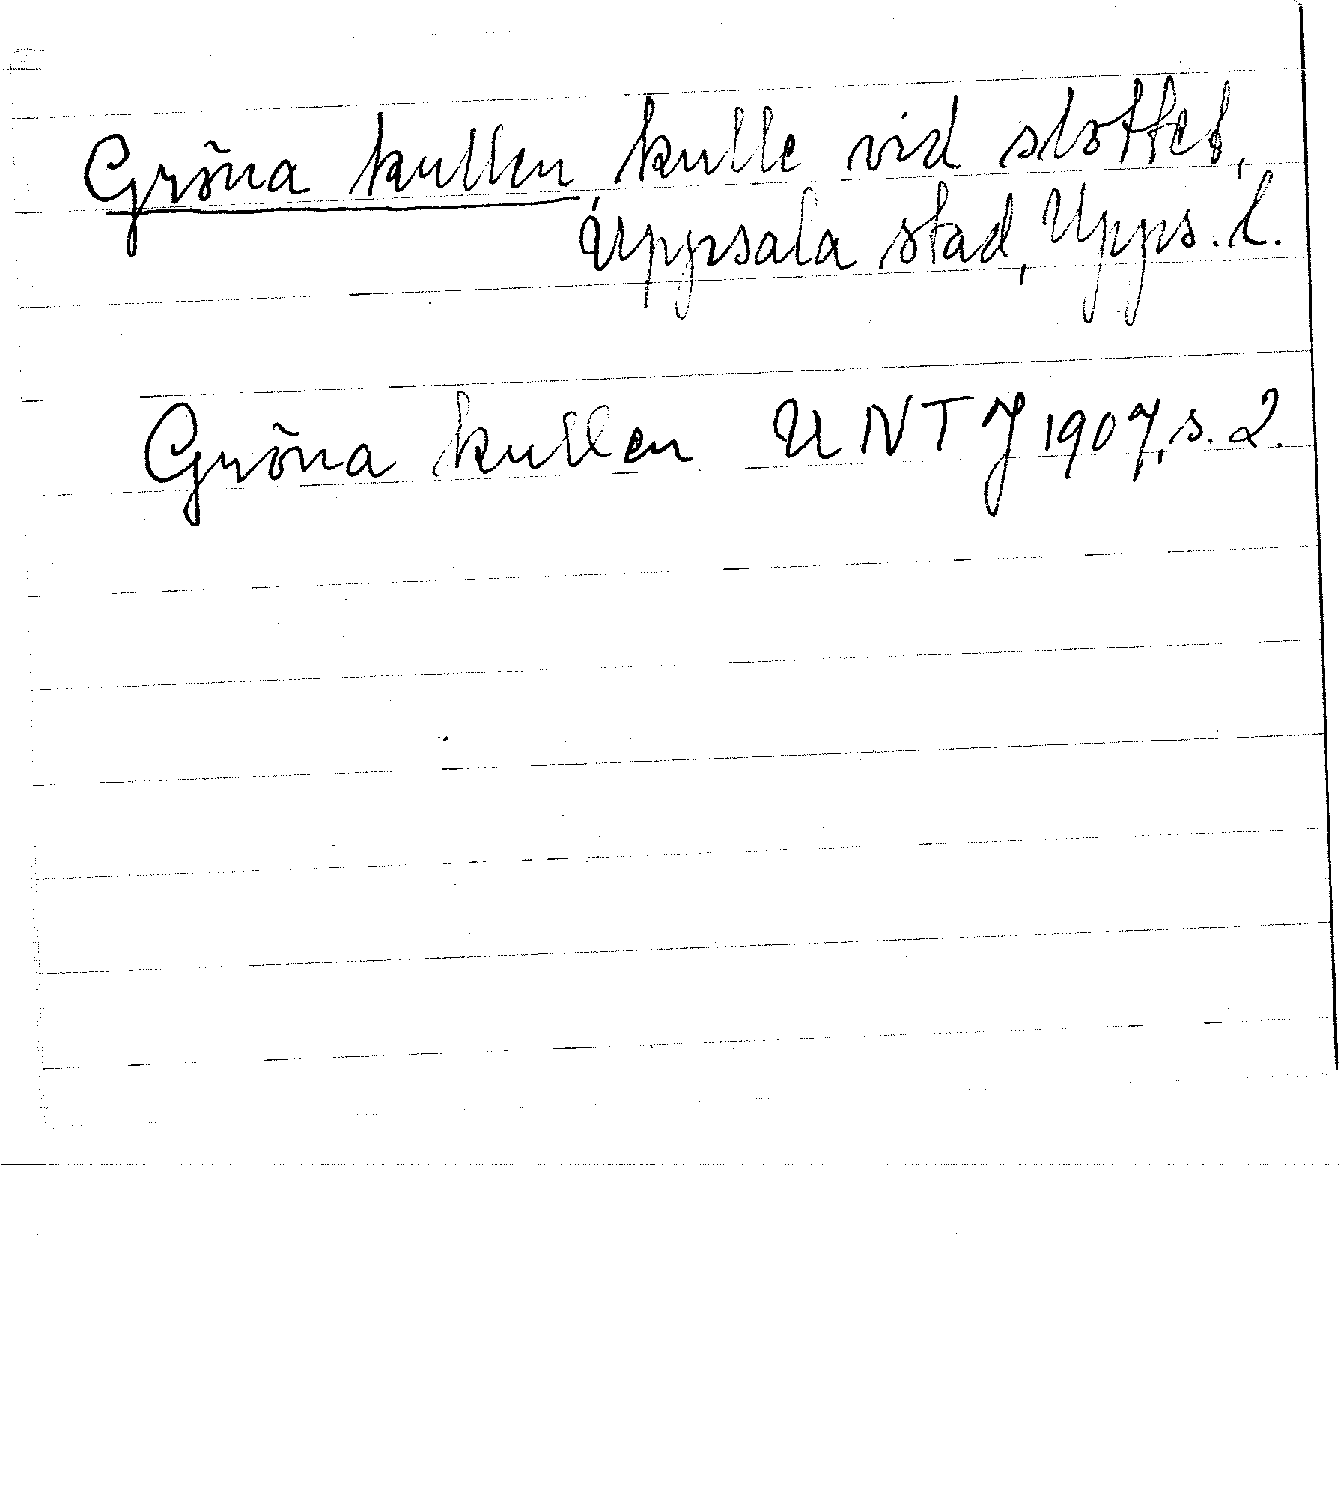 Gröna kullen, kulle vid slottet,
Uppsala stad, Upps. l.
Gröna kullen UNT J 1907, s. 2.